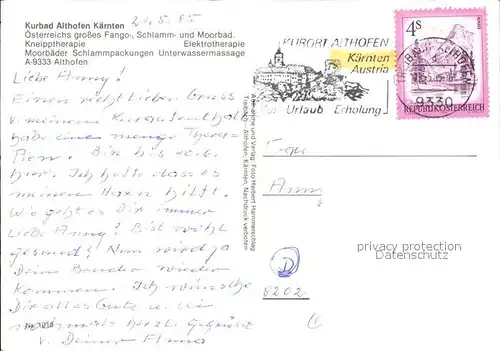 Kurbad Althofen Kärnten
Österreichs großes Fango-, Schlamm- und Moorbad.
Kneipptherapie Elektrotherapie
Moorbäder Schlammpackungen Unterwassermassage
A-9333 Althofen
21.5.85
Liebe Anny!
Einen recht lieben Gruss
v. meinem Kuraufenthalt
habe eine menge Thera-
pien. Bin bis
hier. Ich hoffe dass es
meinen Herzen hilft.
Wie geht es Dir immer
liebe Anny? Bist recht
gesund? Nun wird ja
Dein Bruder wieder
kommen. Ich wünsche
Dir alles Gute u. sei
herzl. gegrüsst
v. Deiner Anna
KURORT ALTHOFEN
Kärnten
Austria
Urlaub Erholung
4S
REPUBLIK ÖSTERREICH
9330
Frau
Anny
D
8202
Aufnahme und Verlag: Foto Herbert Hammerschlag
Treibach - Althofen, Kärnten, Nachdruck verboten
privacy protection
Datenschutz